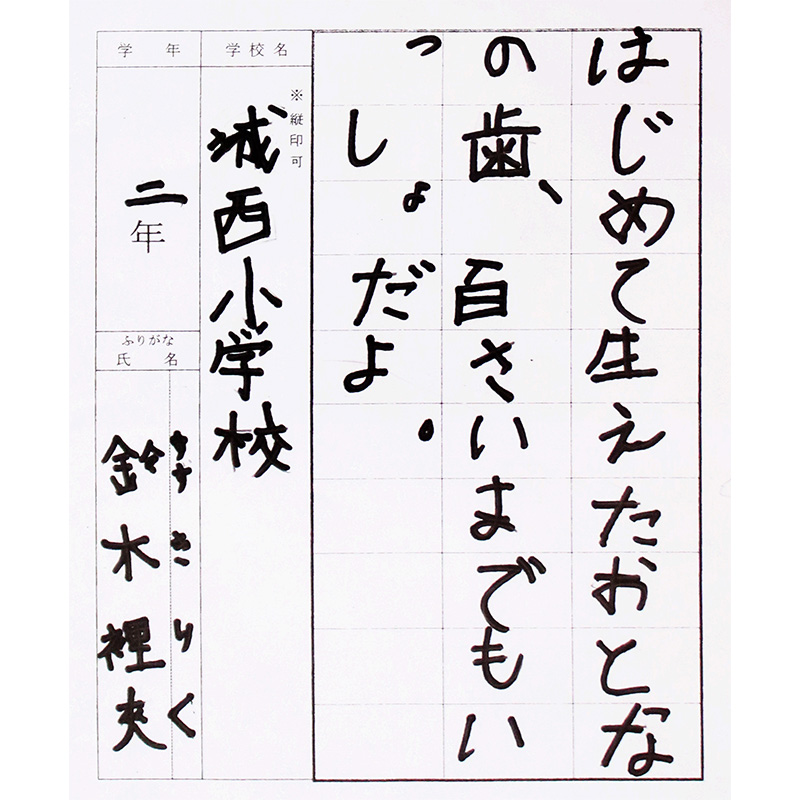 はじめて生えたおとな
の歯、百さいまでもい
っしょだよ。
学校名
※縦印可
城西小学校
学年
二年
ふりがな
氏名
すずき りく
鈴木